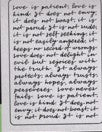 love is patient, love is
kind. It does not envy,
it does not boast, it is
not proud. It is not rude,
it is not self-seeking, it
is not easily angered, it
keeps no record of wrongs.
Love does not delight in
evil but rejoices with
the truth. It always
protects, always trusts,
always hopes, always
perseveres. Love never
fails. Love is patient,
love is kind. It does not
envy, it does not boast, it
is not proud. It is not